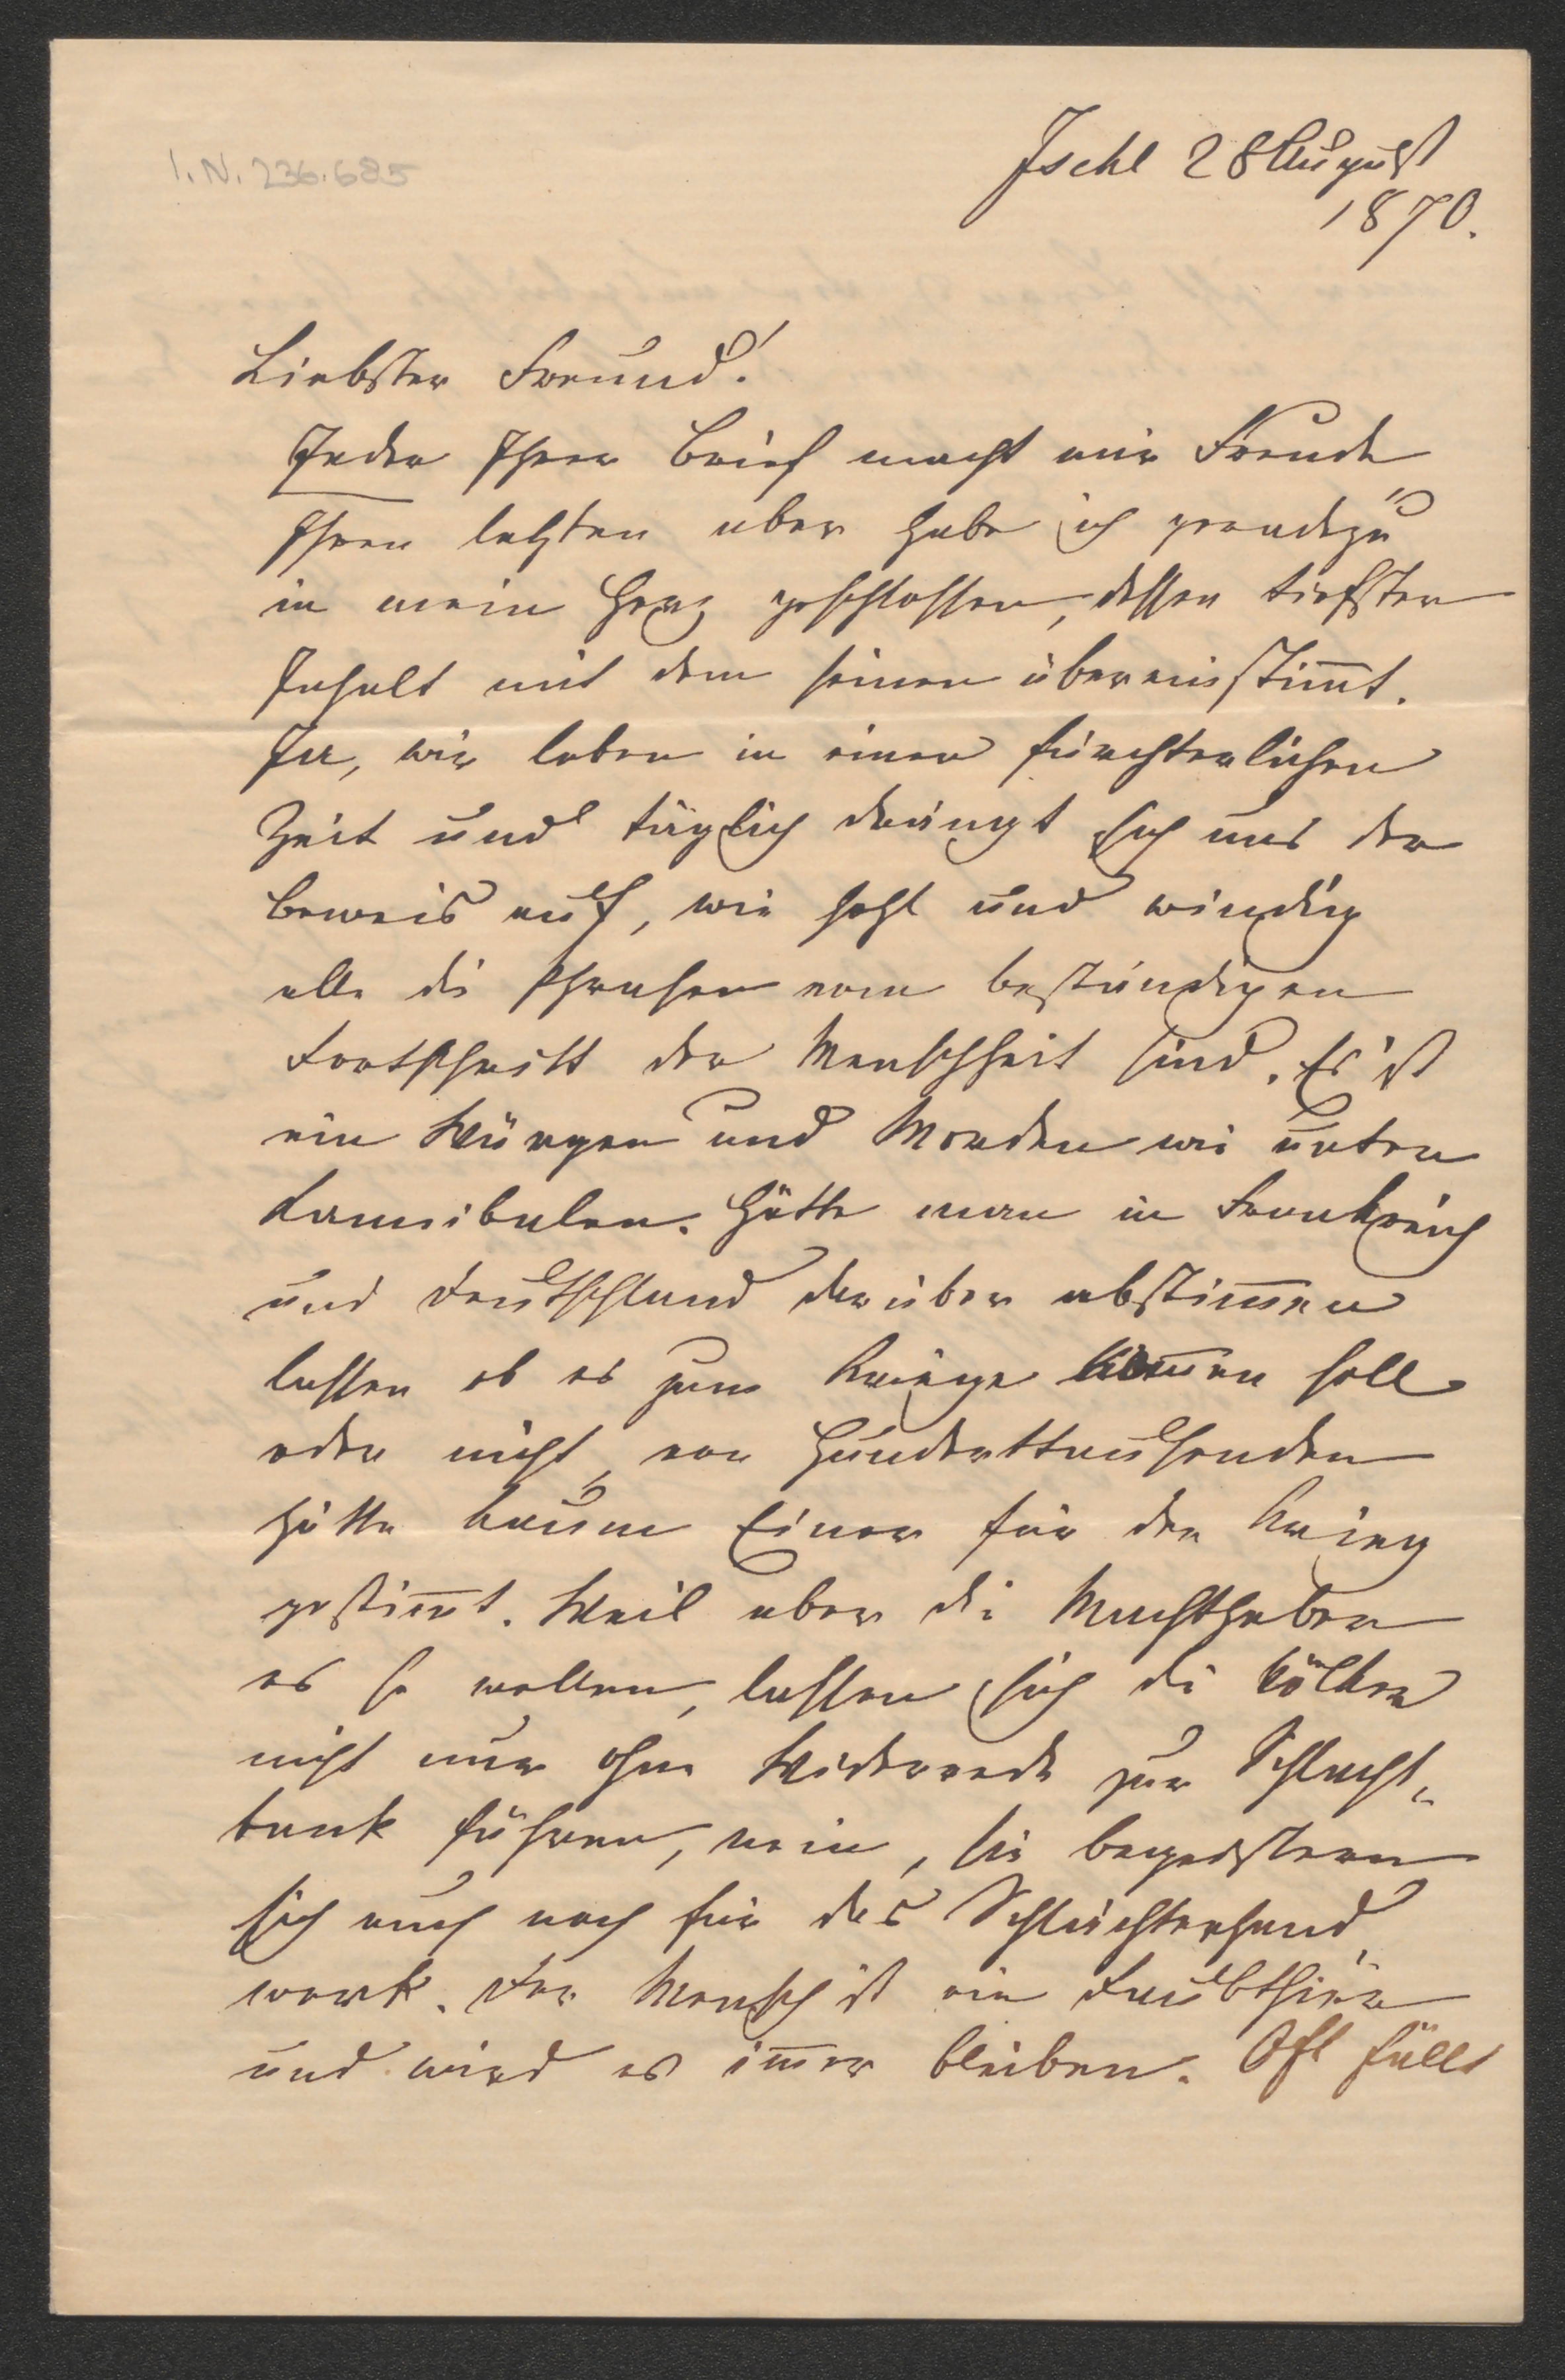 I.N. 236.685
Ischl 28 August
1870.
Liebster Freund!
Jeder Ihrer Briefe macht mir Freude
Ihren letzten aber habe ich geradezu
in mein Herz geschlossen, dessen tiefster
Inhalt mit dem seinen übereinstim̅t.
Ja, wir leben in einer fürchterlichen
Zeit und täglich drängt sich uns der
Beweis auf, wie hohl und windig
alle die Phrasen vom beständigen
Fortschritt der Menschheit sind. Es ist
ein Würgen und Morden wie unter
Kannibalen. Hätte man in Frankreich
und Deutschland darüber abstim̅en
lassen ob es zum Kriege kom̅en soll
oder nicht, von Hunderttausenden
hätte kaum Einer für den Krieg
gestim̅t. Weil aber die Machthaber
es so wollen, lassen sich die Völker
nicht nur ohne Widerrede zur Schlacht„
bank führen, nein, sie begeistern
sich auch noch für das Schlächterhand
werk. Der Mensch ist ein Raubthier
und wird es im̅er bleiben. Oft fällt